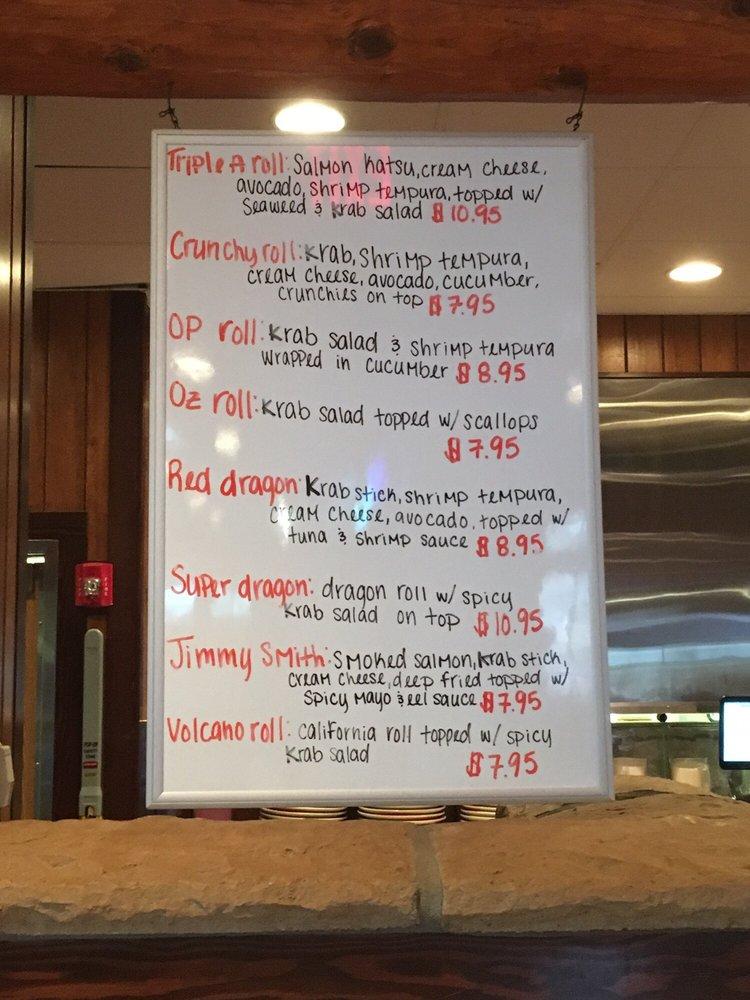 Triple A roll: Salmon Katsu, cream cheese,
avocado, shrimp tempura, topped w/
Seaweed & krab salad $10.95
Crunchy roll: Krab, Shrimp tempura,
cream cheese, avocado, cucumber,
crunchies on top $7.95
OP roll: Krab salad & shrimp tempura
wrapped in cucumber $8.95
Oz roll: Krab salad topped w/ scallops
$7.95
Red dragon: Krab stick, shrimp tempura,
cream cheese, avocado, topped w/
tuna & shrimp sauce $8.95
Super dragon: dragon roll w/ spicy
Krab salad on top $10.95
Jimmy Smith: Smoked salmon, krab stick,
cream cheese, deep fried topped w/
spicy mayo & eel sauce $7.95
Volcano roll: california roll topped w/ spicy
Krab salad $7.95